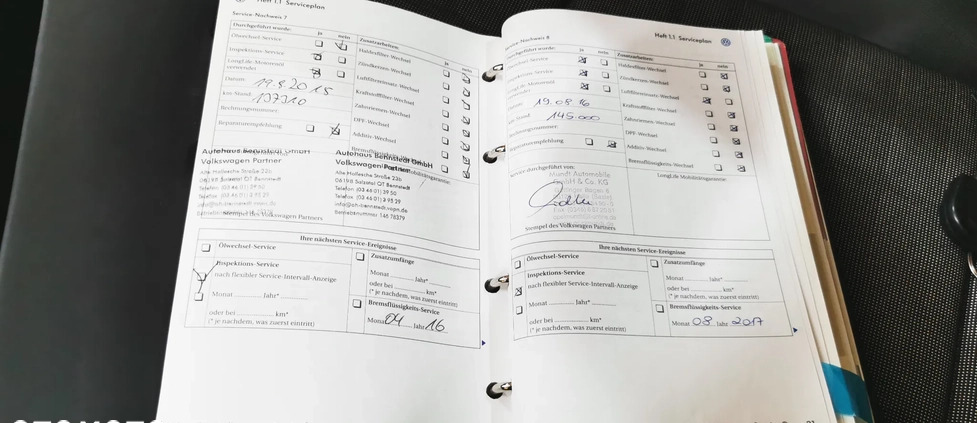 Heft 1.1 Serviceplan
Service-Nachweis 7
Durchgeführt wurde: ja nein Zusatzarbeiten: ja nein
Ölwechsel-Service
Inspektions-Service
LongLife-Motorenöl
verwendet
Datum: 19.8.2015
km-Stand: 137310
Rechnungsnummer:
Reparaturempfehlung
Haldexfilter-Wechsel
Zündkerzen-Wechsel
Luftfiltereinsatz-Wechsel
Kraftstofffilter-Wechsel
Zahnriemen-Wechsel
DPF-Wechsel
Additiv-Wechsel
Autohaus Bennstedt GmbH
Volkswagen Partner
Alte Hallesche Straße 23b
06198 Salzatal OT Bennstedt
Telefon (03 46 01) 39 50
Autohaus Bennstedt GmbH
Volkswagen Partner
Alte Hallesche Straße 23b
06198 Salzatal OT Bennstedt
Telefon (03 46 01) 39 50
Telefax (03 46 01) 3 95 29
Stempel des Volkswagen Partners
Ihre nächsten Service-Ereignisse
Ölwechsel-Service
Inspektions-Service
nach flexibler Service-Intervall-Anzeige
Monat Jahr*
oder bei km*
(* je nachdem, was zuerst eintritt)
Zusatzumfänge
Monat Jahr*
oder bei km*
(* je nachdem, was zuerst eintritt)
Bremsflüssigkeits-Service
Monat 04 Jahr 16
Heft 1.1 Serviceplan
Service-Nachweis 8
Durchgeführt wurde: ja nein Zusatzarbeiten: ja nein
Ölwechsel-Service
Inspektions-Service
LongLife-Motorenöl
verwendet
Datum: 19.08.16
km-Stand: 145.000
Rechnungsnummer:
Reparaturempfehlung
Haldexfilter-Wechsel
Zündkerzen-Wechsel
Luftfiltereinsatz-Wechsel
Kraftstofffilter-Wechsel
Zahnriemen-Wechsel
DPF-Wechsel
Additiv-Wechsel
Bremsflüssigkeits-Wechsel
Service durchgeführt von:
LongLife Mobilitätsgarantie
Mundt Automobile
GmbH & Co. KG
Stempel des Volkswagen Partners
Ihre nächsten Service-Ereignisse
Ölwechsel-Service
Inspektions-Service
nach flexibler Service-Intervall-Anzeige
Monat Jahr*
oder bei km*
(* je nachdem, was zuerst eintritt)
Zusatzumfänge
Monat Jahr*
oder bei km*
(* je nachdem, was zuerst eintritt)
Bremsflüssigkeits-Service
Monat 08 Jahr 2017